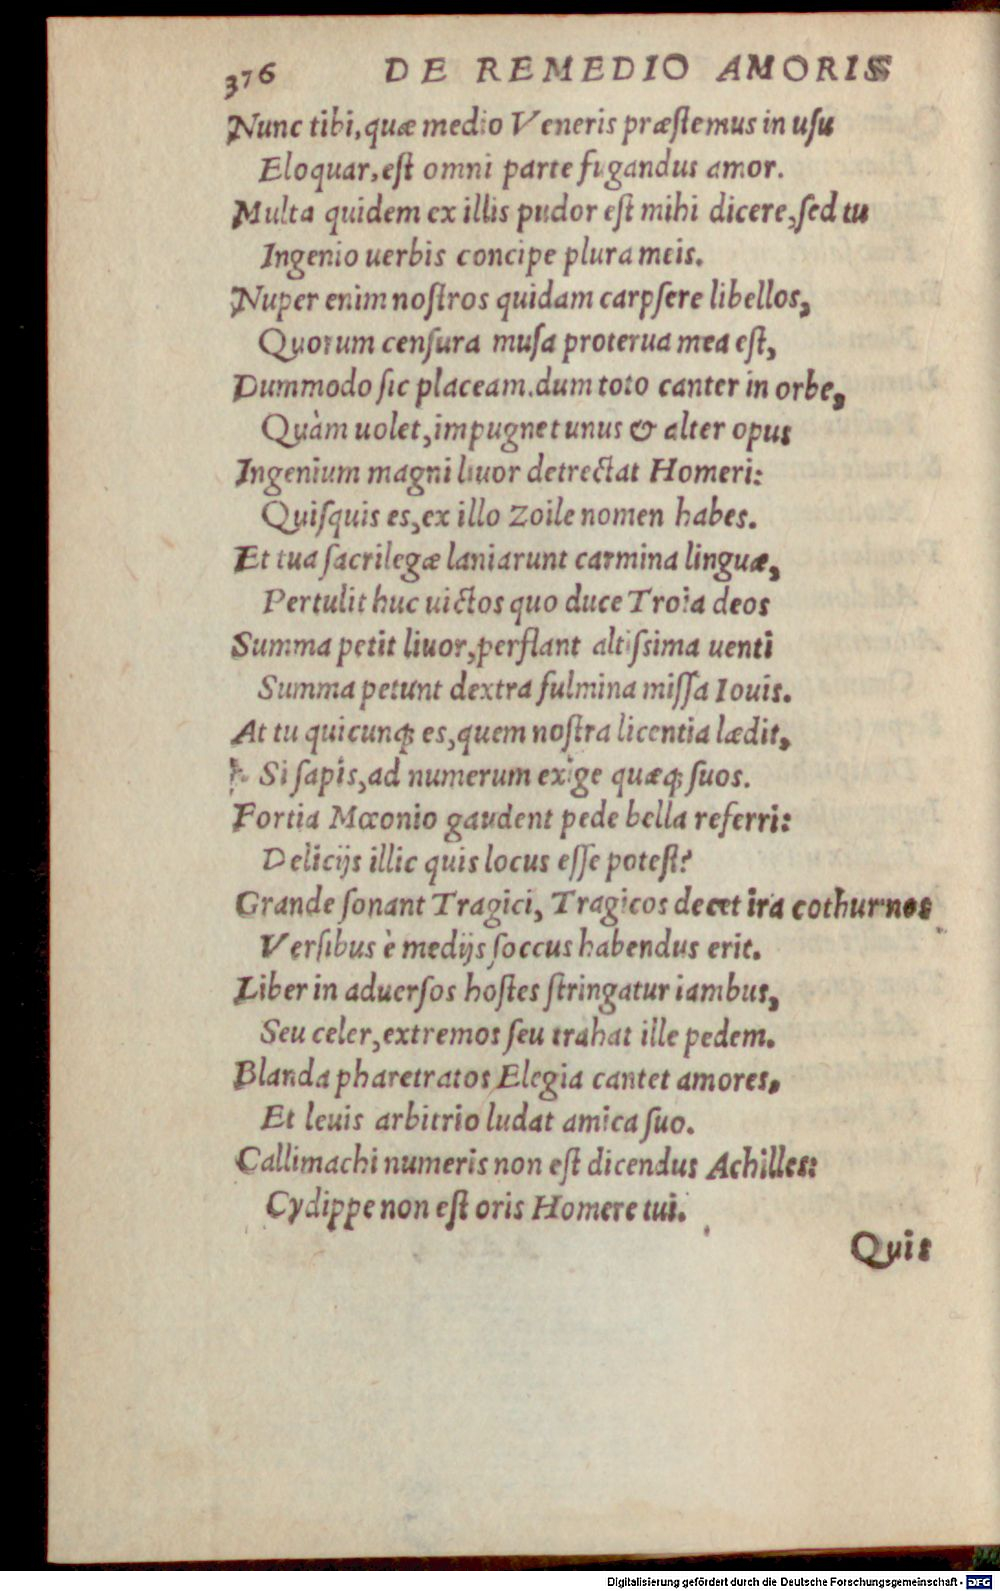 376 DE REMEDIO AMORIS
Nunc tibi, quæ medio Veneris præstemus in usu
Eloquar, est omni parte fugandus amor.
Multa quidem ex illis pudor est mihi dicere, sed tu
Ingenio uerbis concipe plura meis.
Nuper enim nostros quidam carpsere libellos,
Quorum censura musa proterua mea est,
Dummodo sic placeam. dum toto canter in orbe,
Quàm uolet, impugnet unus & alter opus
Ingenium magni liuor detrectat Homeri:
Quisquis es, ex illo Zoile nomen habes.
Et tua sacrilegæ laniarunt carmina linguæ,
Pertulit huc uictos quo duce Troia deos
Summa petit liuor, perflant altissima uenti
Summa petunt dextra fulmina missa Iouis.
At tu quicunq; es, quem nostra licentia lædit,
Si sapis, ad numerum exige quæq; suos.
Fortia Mœonio gaudent pede bella referri:
Delicijs illic quis locus esse potest?
Grande sonant Tragici, Tragicos decet ira cothurnos
Versibus è medijs soccus habendus erit.
Liber in aduersos hostes stringatur iambus,
Seu celer, extremos seu trahat ille pedem.
Blanda pharetratos Elegia cantet amores,
Et leuis arbitrio ludat amica suo.
Callimachi numeris non est dicendus Achilles:
Cydippe non est oris Homere tui.
Quis
Digitalisierung gefördert durch die Deutsche Forschungsgemeinschaft - DFG